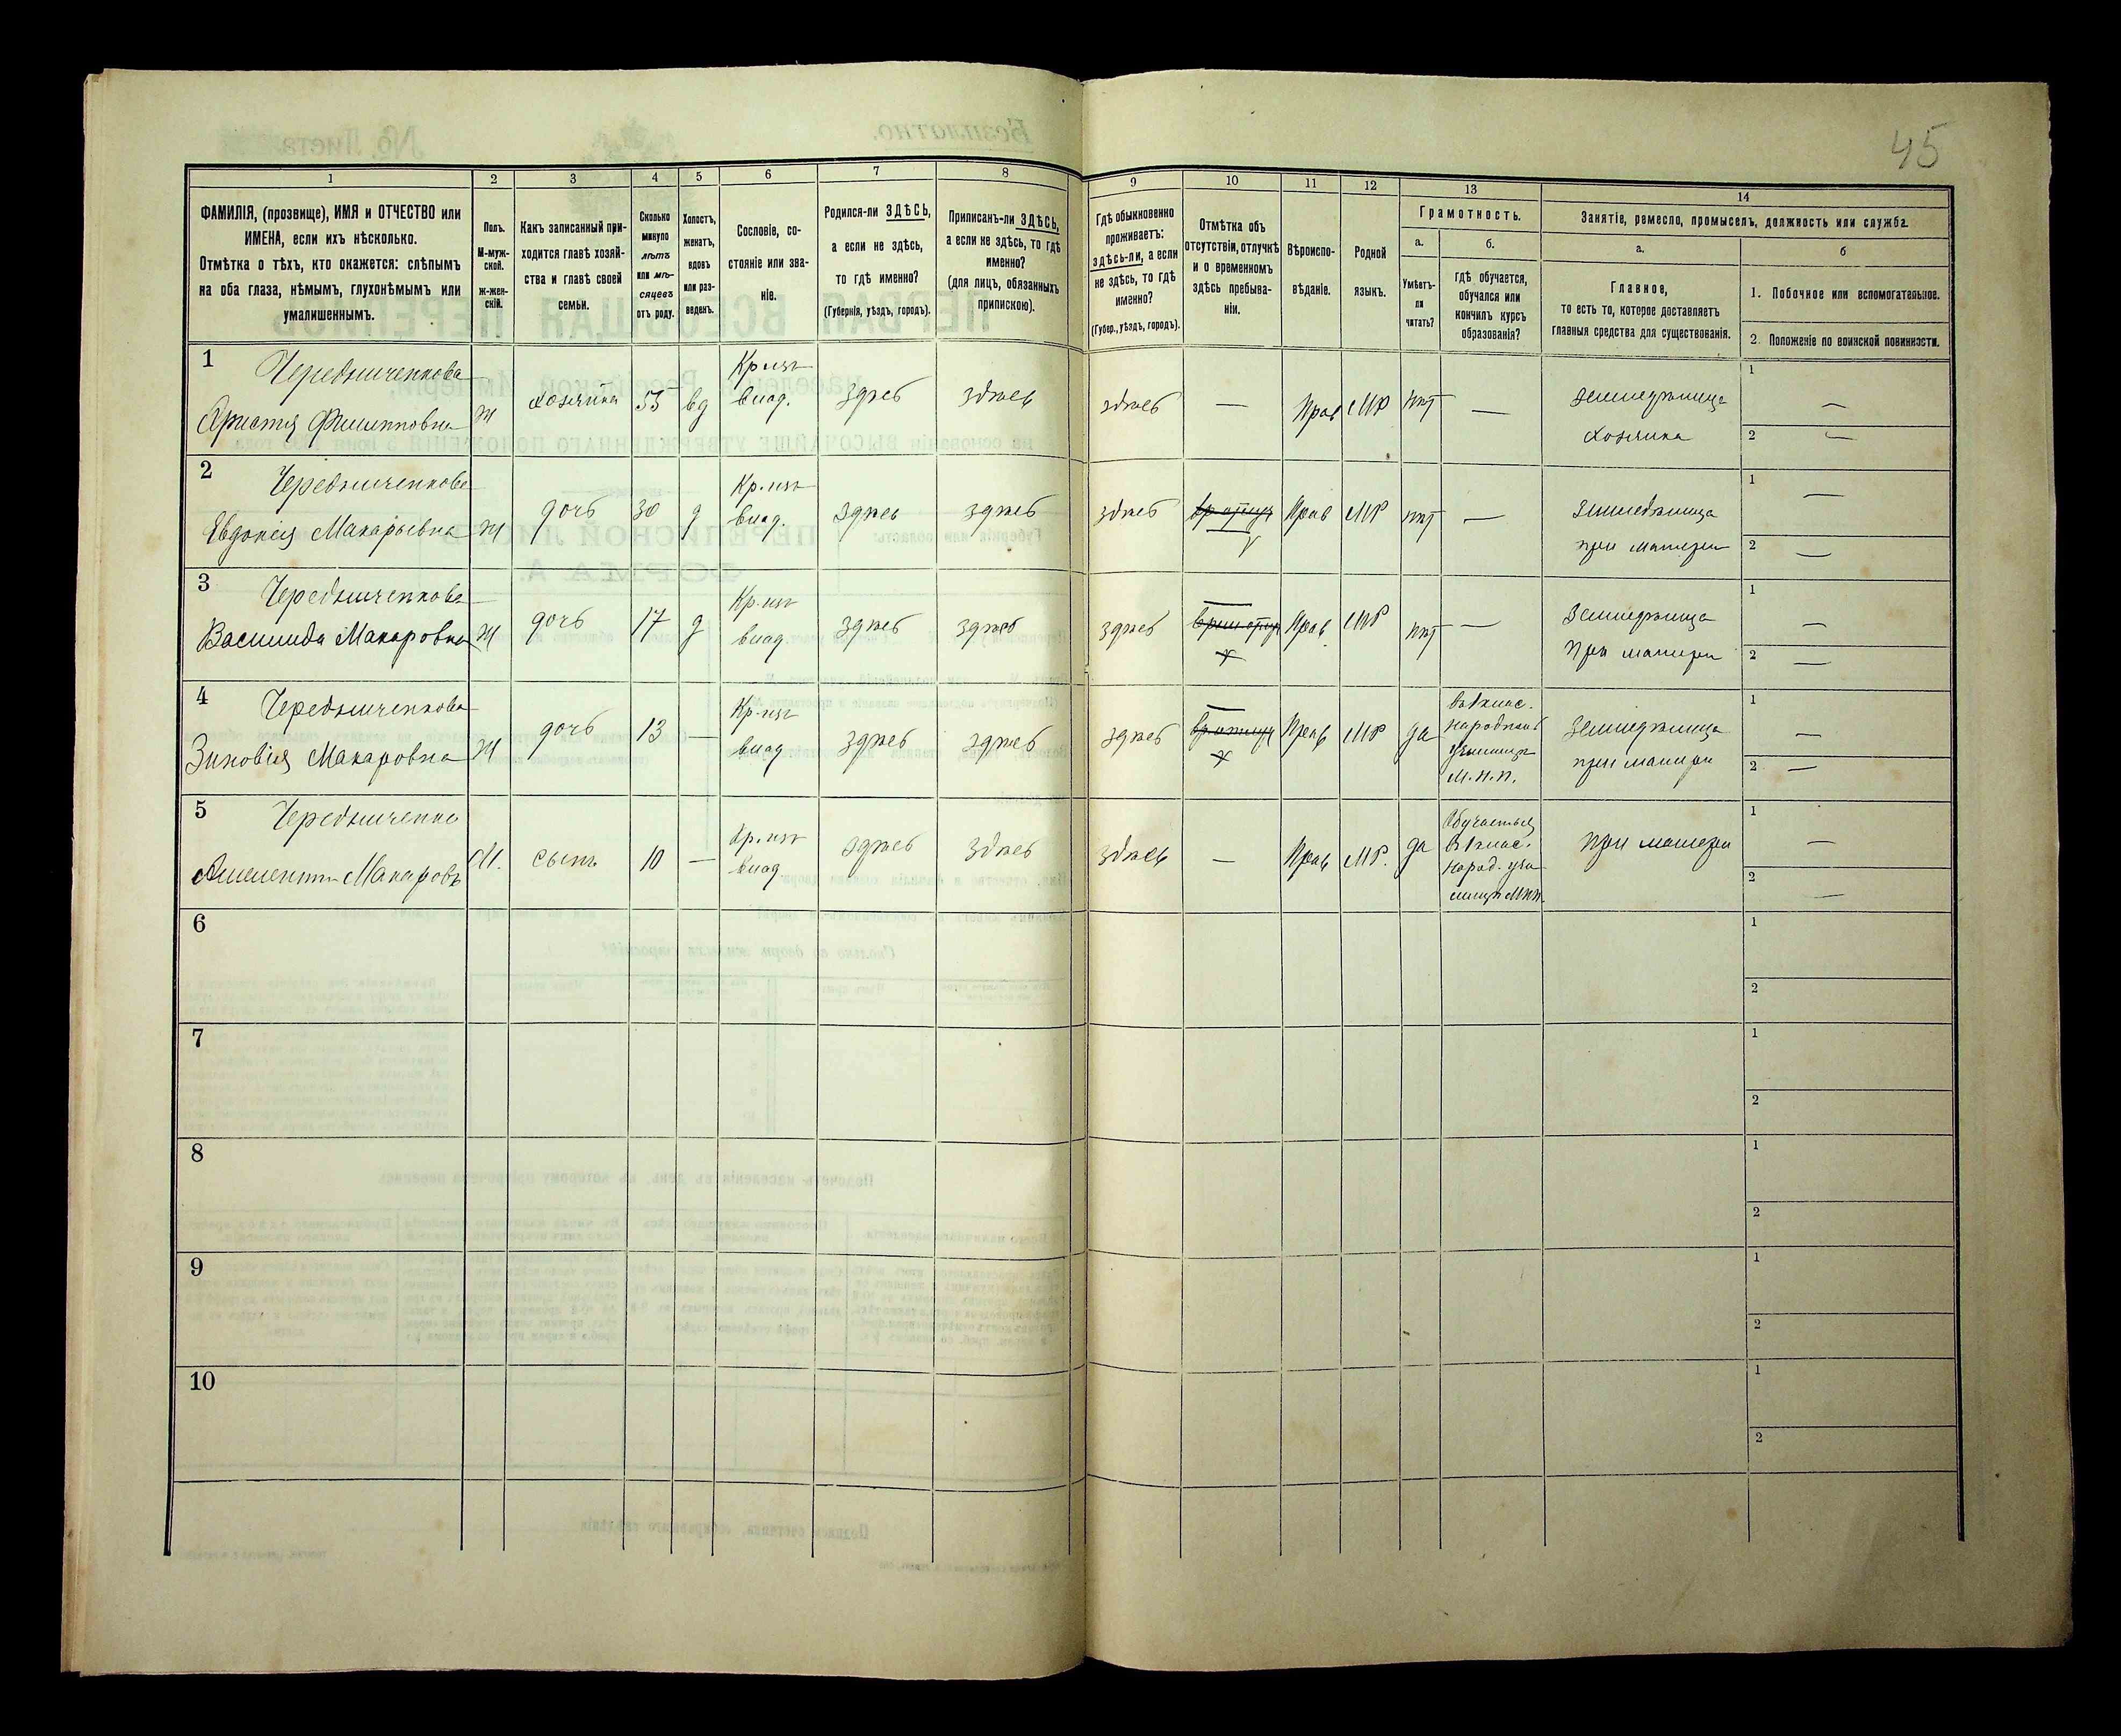 45
1
2
3
4
5
6
7
8
9
10
11
12
13
14
ФАМИЛІЯ, (прозвище), ИМЯ и ОТЧЕСТВО или
ИМЕНА, если ихъ нѣсколько.
Отмѣтка о тѣхъ, кто окажется: слѣпымъ
на оба глаза, нѣмымъ, глухонѣмымъ или
умалишеннымъ.
Полъ.
М-муж-
ской.
ж-жен-
скій.
Какъ записанный при-
ходится главѣ хозяй-
ства и главѣ своей
семьи.
Сколько
минуло
лѣтъ
или мѣ-
сяцевъ
отъ роду.
Холостъ,
женатъ,
вдовъ
или раз-
веденъ.
Сословіе, со-
стояніе или зва-
ніе.
Родился-ли ЗДѢСЬ,
а если не здѣсь,
то гдѣ именно?
(Губернія, уѣздъ, городъ).
Приписанъ-ли ЗДѢСЬ,
а если не здѣсь, то гдѣ
именно?
(для лицъ, обязанныхъ
припискою).
Гдѣ обыкновенно
проживаетъ:
здѣсь-ли, а если
не здѣсь, то гдѣ
именно?
(Губер., уѣздъ, городъ).
Отмѣтка объ
отсутствіи, отлучкѣ
и о временномъ
здѣсь пребыва-
ніи.
Вѣроиспо-
вѣданіе.
Родной
языкъ.
Грамотность.
а.
Умѣетъ-
ли
читать?
б.
гдѣ обучается,
обучался или
кончилъ курсъ
образованія?
Занятіе, ремесло, промыселъ, должность или служба.
а.
Главное,
то есть то, которое доставляетъ
главныя средства для существованія.
б
1. Побочное или вспомогательное.
2. Положеніе по воинской повинности.
1
Чередниченкова
Филипповна
Ж
хозяйка
53
вд
Кр. изъ
влад.
здѣсь
здѣсь
здѣсь
—
Прав
МР
нѣт
—
земледѣлица
хозяйка
1 —
2 —
2
Чередниченкова
Евдокія Макарьевна
Ж
дочь
30
д
Кр. изъ
влад.
здѣсь
здѣсь
здѣсь
Прав
МР
нѣт
—
Земледѣлица
при матери
1 —
2 —
3
Чередниченкова
Василида Макаровна
Ж
дочь
17
д
Кр. изъ
влад.
здѣсь
здѣсь
здѣсь
Прав
МР
нѣт
—
Земледѣлица
При матери
1 —
2 —
4
Чередниченкова
Зиновія Макаровна
Ж
дочь
13
—
Кр. изъ
влад
здѣсь
здѣсь
здѣсь
Прав
МР
да
народном
училищѣ
М.Н.П.
Земледѣлица
при матери
1 —
2 —
5
Чередниченко
Макаровъ
М.
сынъ
10
—
Кр. изъ
влад
здѣсь
здѣсь
здѣсь
—
Прав
МР.
да
Обучается
народ. учи
лищѣ МНП.
При матери
1 —
2 —
6
1
2
7
1
2
8
1
2
9
1
2
10
1
2